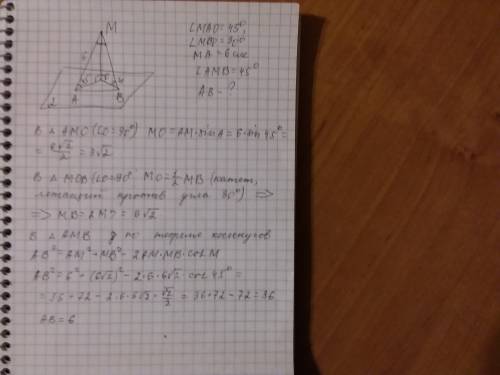 M
A
B
∠MAO = 45°,
∠MBO = 30°
MA = 6 см
∠AMB = 45°
AB - ?
В △ AMO (∠O = 90°) MO = AM · sin A = 6 · sin 45° =
= 6√2/2 = 3√2
В △ MOB (∠O = 90° MO = 1/2 MB (катет,
лежащий против угла 30°) ⟹
⟹ MB = 2MO = 6√2
В △ AMB по теореме косинусов
AB² = AM² + MB² - 2AM · MB · cos M
AB² = 6² + (6√2)² - 2 · 6 · 6√2 · cos 45° =
= 36 + 72 - 2 · 6 · 6√2 · √2/2 = 36 + 72 - 72 = 36
AB = 6